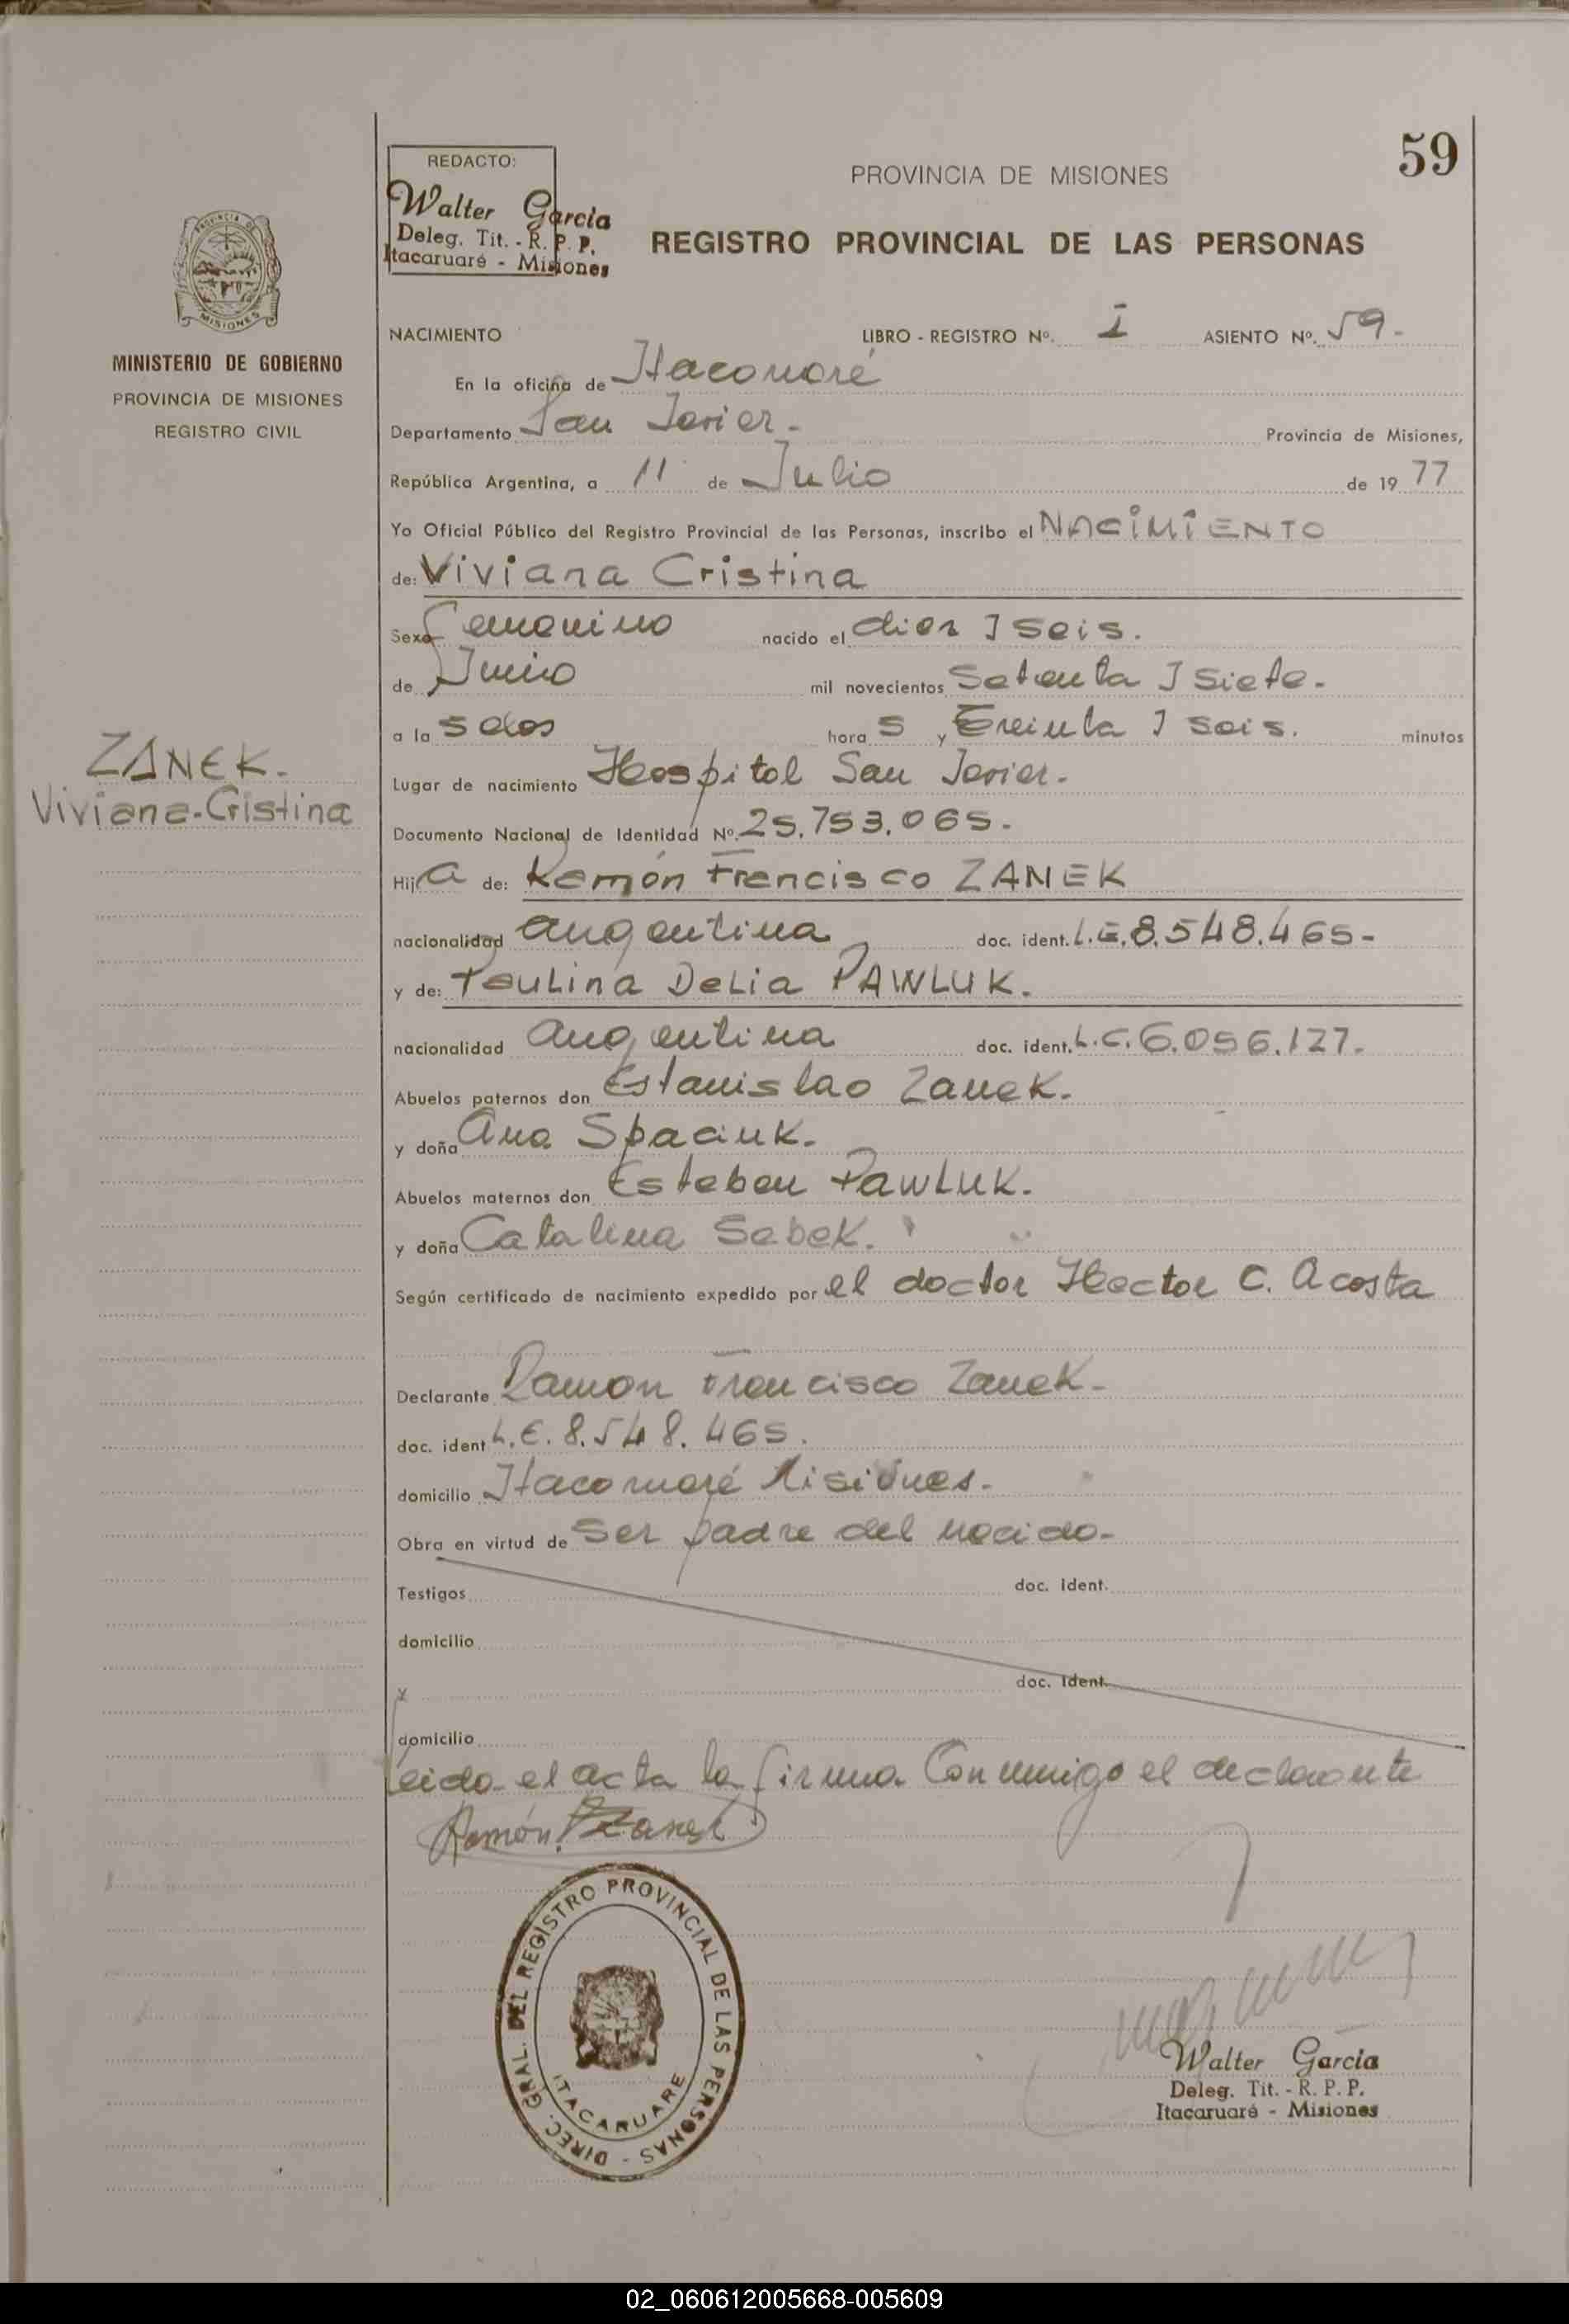 59
REDACTO:
Walter Garcia
Deleg. Tit. - R. P. P.
Itacaruaré - Misiones
PROVINCIA DE MISIONES
REGISTRO PROVINCIAL DE LAS PERSONAS
MISIONES
MINISTERIO DE GOBIERNO
PROVINCIA DE MISIONES
REGISTRO CIVIL
NACIMIENTO LIBRO - REGISTRO Nº. I ASIENTO Nº. 59.-
En la oficina de Itacaruaré
Departamento San Javier.- Provincia de Misiones,
República Argentina, a 11 de Julio de 19 77
Yo Oficial Público del Registro Provincial de las Personas, inscribo el NACIMIENTO
de: Viviana Cristina
Sexo Femenino nacido el diez I seis.
de Junio mil novecientos Setenta I siete.-
a la s dos hora s y Treinta I seis. minutos
ZANEK.
Viviana-Cristina
Lugar de nacimiento Hospital San Javier.-
Documento Nacional de Identidad Nº. 25.753.065.-
Hij a de: Ramón Francisco ZANEK
nacionalidad argentina doc. ident. L.E.8.548.465-
y de: Paulina Delia PAWLUK.
nacionalidad argentina doc. ident. L.C.6.056.127.-
Abuelos paternos don Estanislao Zanek.-
y doña Ana Spaciuk.-
Abuelos maternos don Esteban Pawluk.-
y doña Catalina Sebek.
Según certificado de nacimiento expedido por el doctor Hector C. Acosta
Declarante Ramon Francisco Zanek.-
doc. ident L.E. 8.548.465.
domicilio Itacaruaré Misiones.-
Obra en virtud de ser padre del nacido.-
Testigos doc. ident.
domicilio
y doc. ident.
domicilio
Leida el acta la firma Conmigo el declarante
Ramón F. Zanek
DIREC. GRAL. DEL REGISTRO PROVINCIAL DE LAS PERSONAS -
ITACARUARE
Walter Garcia
Deleg. Tit. - R. P. P.
Itacaruaré - Misiones
02_060612005668-005609